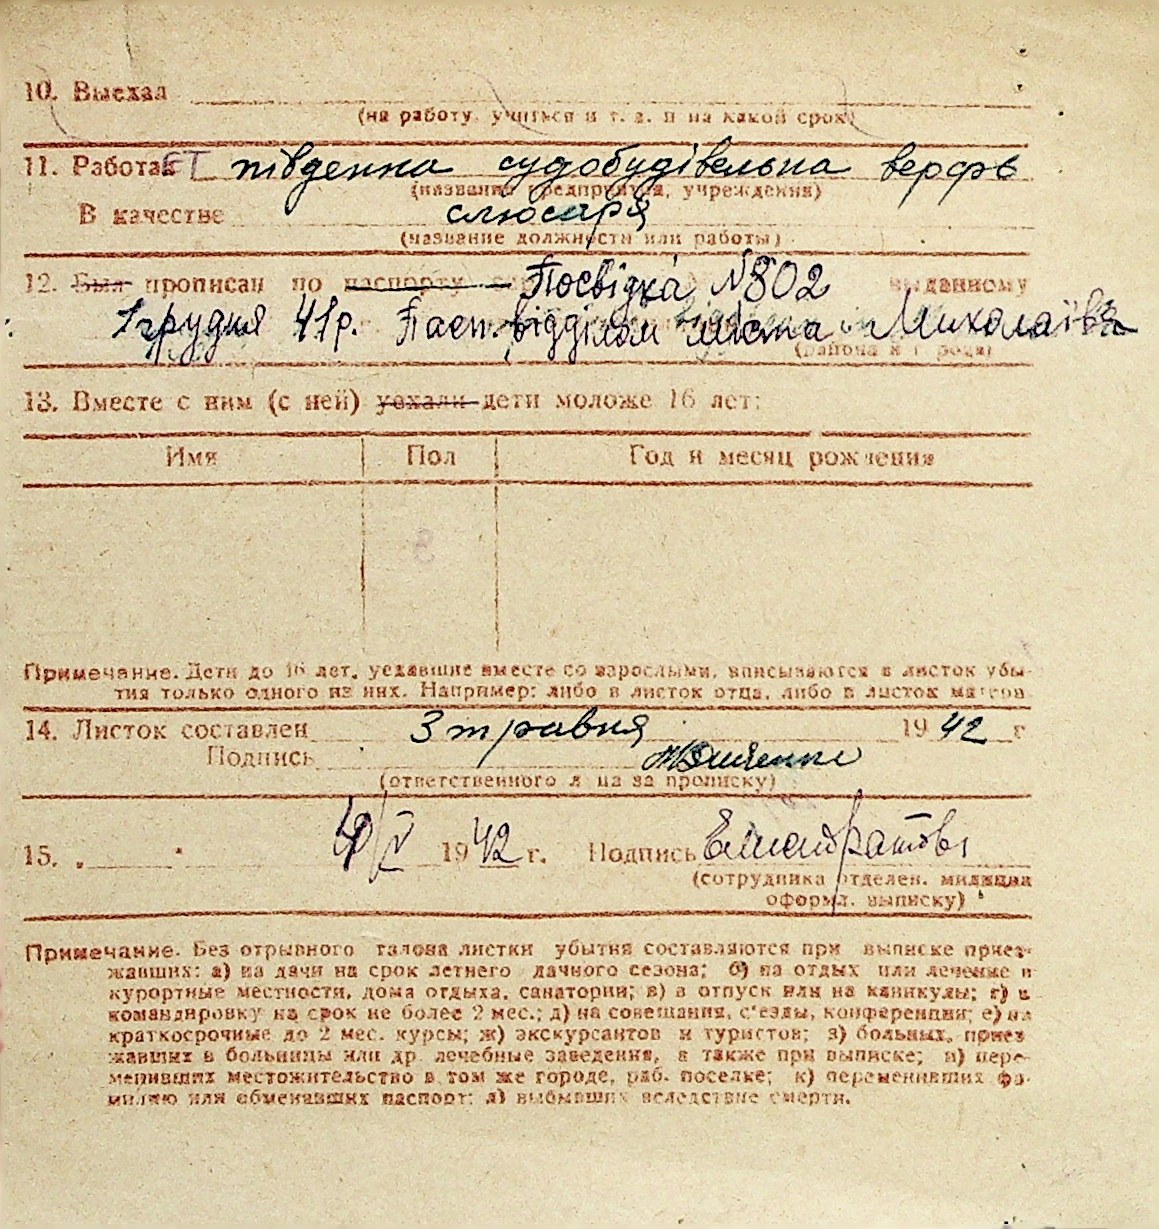 10. Выехал
(на работу, учиться и т. д. и на какой срок)
11. Работает південна судобудівельна верфь
(название предприятия, учреждения)
В качестве слюсаря
(название должности или работы)
12. Был прописан по паспорту Посвідка №802 выданному
1 грудня 41р. Пасп. відділом міста Миколаїва
(района и города)
13. Вместе с ним (с ней) уехали дети моложе 16 лет:
Имя Пол Год и месяц рождения
Примечание. Дети до 16 лет, уехавшие вместе со взрослыми, вписываются в листок убы-
тия только одного из них. Например: либо в листок отца, либо в листок матери.
14. Листок составлен 3 травня 1942 г
Подпись
(ответственного лица за прописку)
15. „ " /V 1942 г. Подпись
(сотрудника отделен. милиции
оформл. выписку)
Примечание. Без отрывного талона листки убытия составляются при выписке приез-
жавших: а) на дачи на срок летнего дачного сезона; б) на отдых или лечение в
курортные местности, дома отдыха, санатории; в) в отпуск или на каникулы; г) в
командировку на срок не более 2 мес.; д) на совещания, с'езды, конференции; е) на
краткосрочные до 2 мес. курсы; ж) экскурсантов и туристов; з) больных, приез
жавших в больницы или др. лечебные заведения, а также при выписке; и) пере-
менивших местожительство в том же городе, раб. поселке; к) переменивших фа-
милию или обменявших паспорт; л) выбывших вследствие смерти.